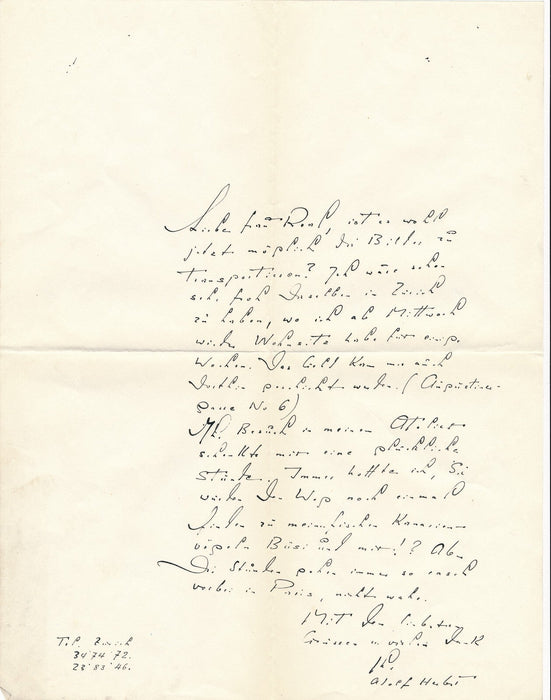 Liebe Frau Real, ist es wohl
jetzt möglich die Bilder zu
transportieren? Ich wäre schon
sehr froh dieselben in Zürich
zu haben, wo ich ab Mittwoch
wieder Wohnsitz habe für einige
Wochen. Das Geld kann mir auch
dorthin geschickt werden. (Augustiner-
gasse No 6)
Ihr Besuch in meinem Atelier
schenkte mir eine glückliche
Stunde. Immer hoffte ich, Sie
würden den Weg noch einmal
finden zu meinen Kanarien-
vögeln Büsi und mir!? Aber
die Stunden gehen immer so rasch
vorbei in Paris, nicht wahr.
Mit den liebsten
Grüssen u. vielen Dank
Ihr
Adolf Herbst
Tel. Zürich
34'74'72.
23'83'46.